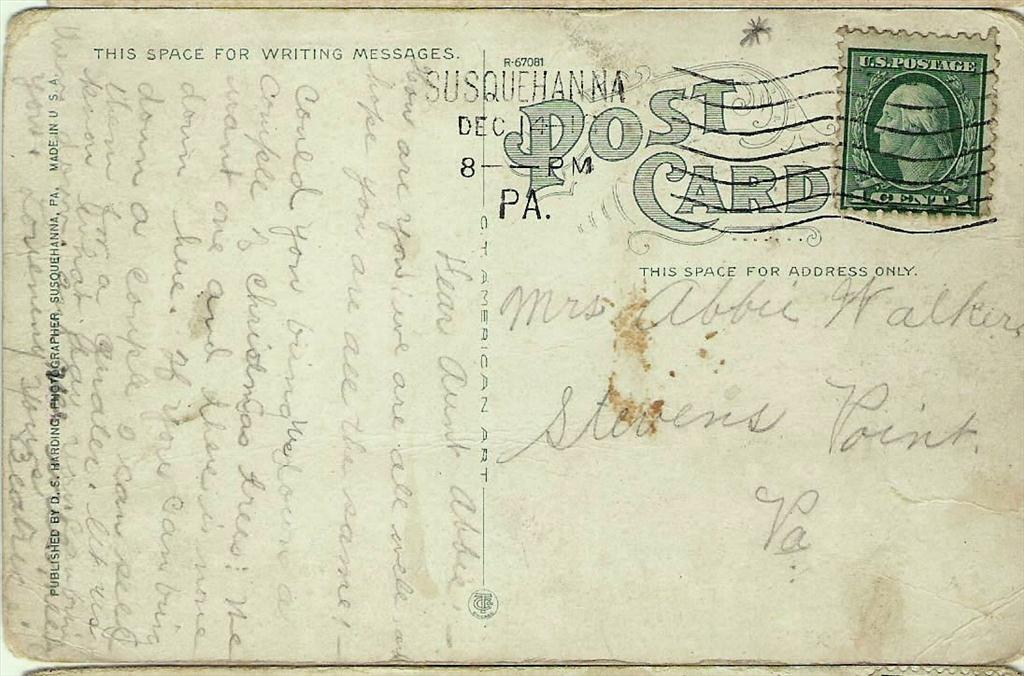 THIS SPACE FOR WRITING MESSAGES.
R-67081
SUSQUEHANNA
DEC 14
8 — PM
PA.
POST
CARD
U.S. POSTAGE
1 CENT 1
THIS SPACE FOR ADDRESS ONLY.
Mrs Abbie Walker
Stevens Point
Pa
C T AMERICAN ART
PUBLISHED BY D. S. HARDING, PHOTOGRAPHER, SUSQUEHANNA, PA. MADE IN U.S.A.
Dear Aunt Abbie:—
How are you? we are all well and
hope you are all the same!—
Could you bring up down a
couple of christmas trees? We
want one and there is none
down here. If you can bring
down a couple I can sell
them for a Quarter. let us
know what day